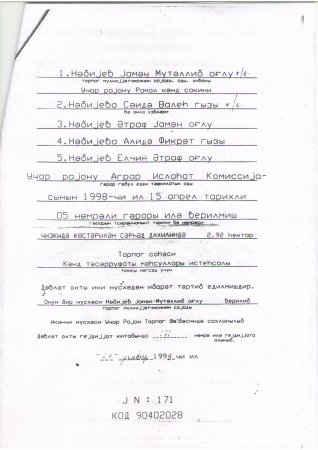 1.Нәбијев Јәмән Мүтәллиб оғлу
торпаг мүлкијјәтчисинин сојады, ады,
Учар рајону Рәкол кәнд сакини
2.Нәбијева Сәидә Валеһ гызы
вә аилә үзвләри
3.Нәбијев Әтраф Јәмән оғлу
4.Нәбијева Алидә Фикрәт гызы
5.Нәбијев Елчин Әтраф оғлу
Учар рајону Аграр Ислаһат Комиссија-
гәрар гәбул едән тәшкилатын ады
сынын 1998-чи ил 15 апрел тарихли
05 нөмрәли гәрары илә верилмиш
гәрарын (сәрәнҹамын) тарихи вә нөмрәси
ҹизкидә көстәрилән сәрһәд дахилиндә 2.92 һектар
Торпаг саһәси
Кәнд тәсәррүфаты мәһсуллары истеһсалы
һансы мәгсәд үчүн
Дөвләт акты ики нүсхәдән ибарәт тәртиб едилмишдир.
Онун бир нүсхәси Нәбијев Јәмән Мүтәллиб оғлу верилиб
торпаг мүлкијјәтчисинин сојады
Икинҹи нүсхәси Учар Рајон Торпаг Шө'бәсиндә сахланылыб
Дөвләт акты гејдијјат китабында 171 нөмрә илә гејдијјата
алыныб.
1998 чи ил
Ј N : 171
КОД 90402028